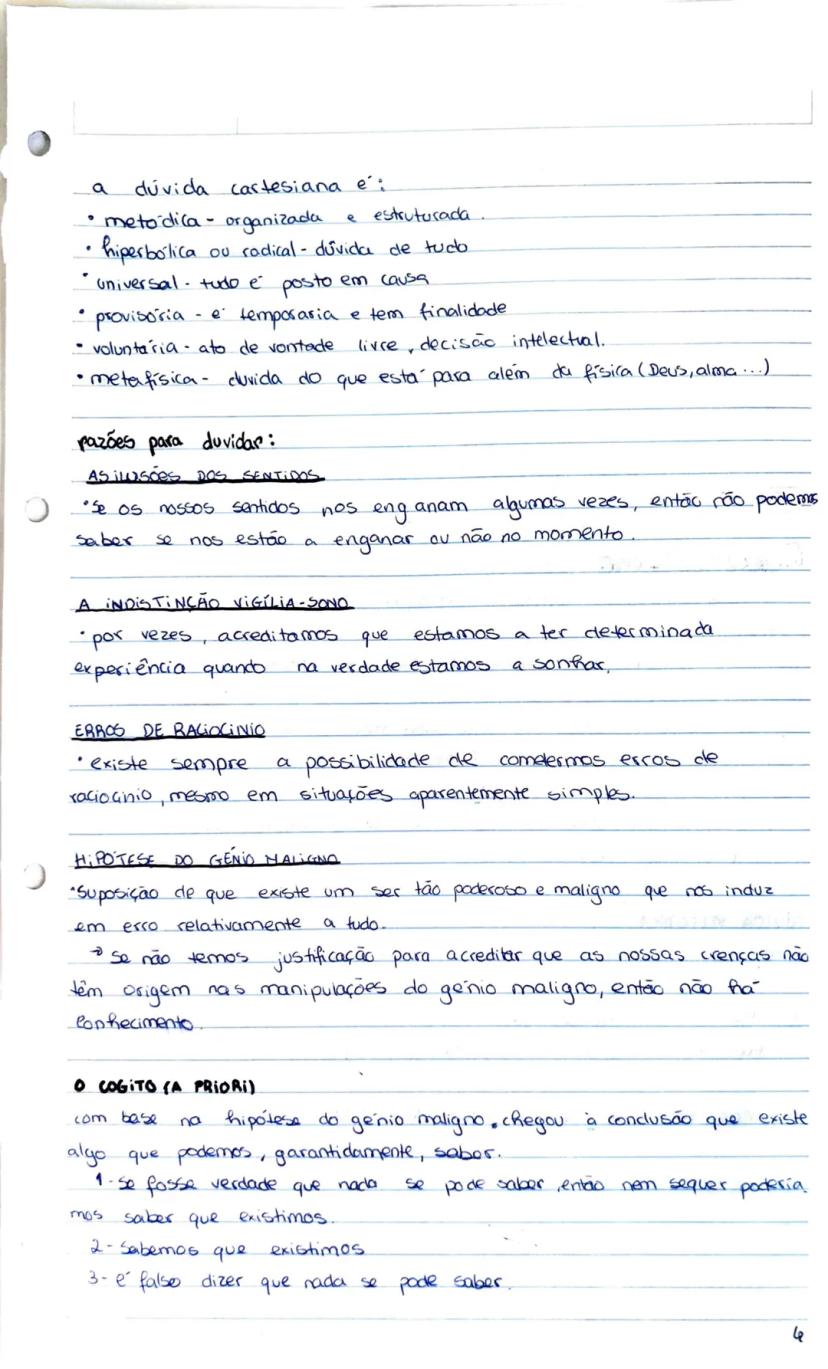 a dúvida cartesiana é:
• metódica - organizada e estruturada.
• hiperbólica ou radical - dúvida de tudo
• universal - tudo é posto em causa
• provisória - é temporaria e tem finalidade
• voluntária - ato de vontade livre, decisão intelectual.
• metafísica - duvida do que está para além da física (Deus, alma...)
razões para duvidar:
AS ILUSÕES DOS SENTIDOS
• Se os nossos sentidos nos enganam algumas vezes, então não podemos
saber se nos estão a enganar ou não no momento.
A INDISTINÇÃO VIGÍLIA-SONO
• por vezes, acreditamos que estamos a ter determinada
experiência quando na verdade estamos a sonhar.
ERROS DE RACIOCINIO
• existe sempre a possibilidade de cometermos erros de
raciocinio, mesmo em situações aparentemente simples.
HIPÓTESE DO GÉNIO MALIGNO
• Suposição de que existe um ser tão poderoso e maligno que nos induz
em erro relativamente a tudo.
→ Se não temos justificação para acreditar que as nossas crenças não
têm origem nas manipulações do génio maligno, então não há
conhecimento.
O COGITO (A PRIORI)
com base na hipótese do génio maligno, chegou à conclusão que existe
algo que podemos, garantidamente, saber.
1 - se fosse verdade que nada se pode saber, então nem sequer poderia
mos saber que existimos.
2 - Sabemos que existimos
3 - é falso dizer que nada se pode saber.
4